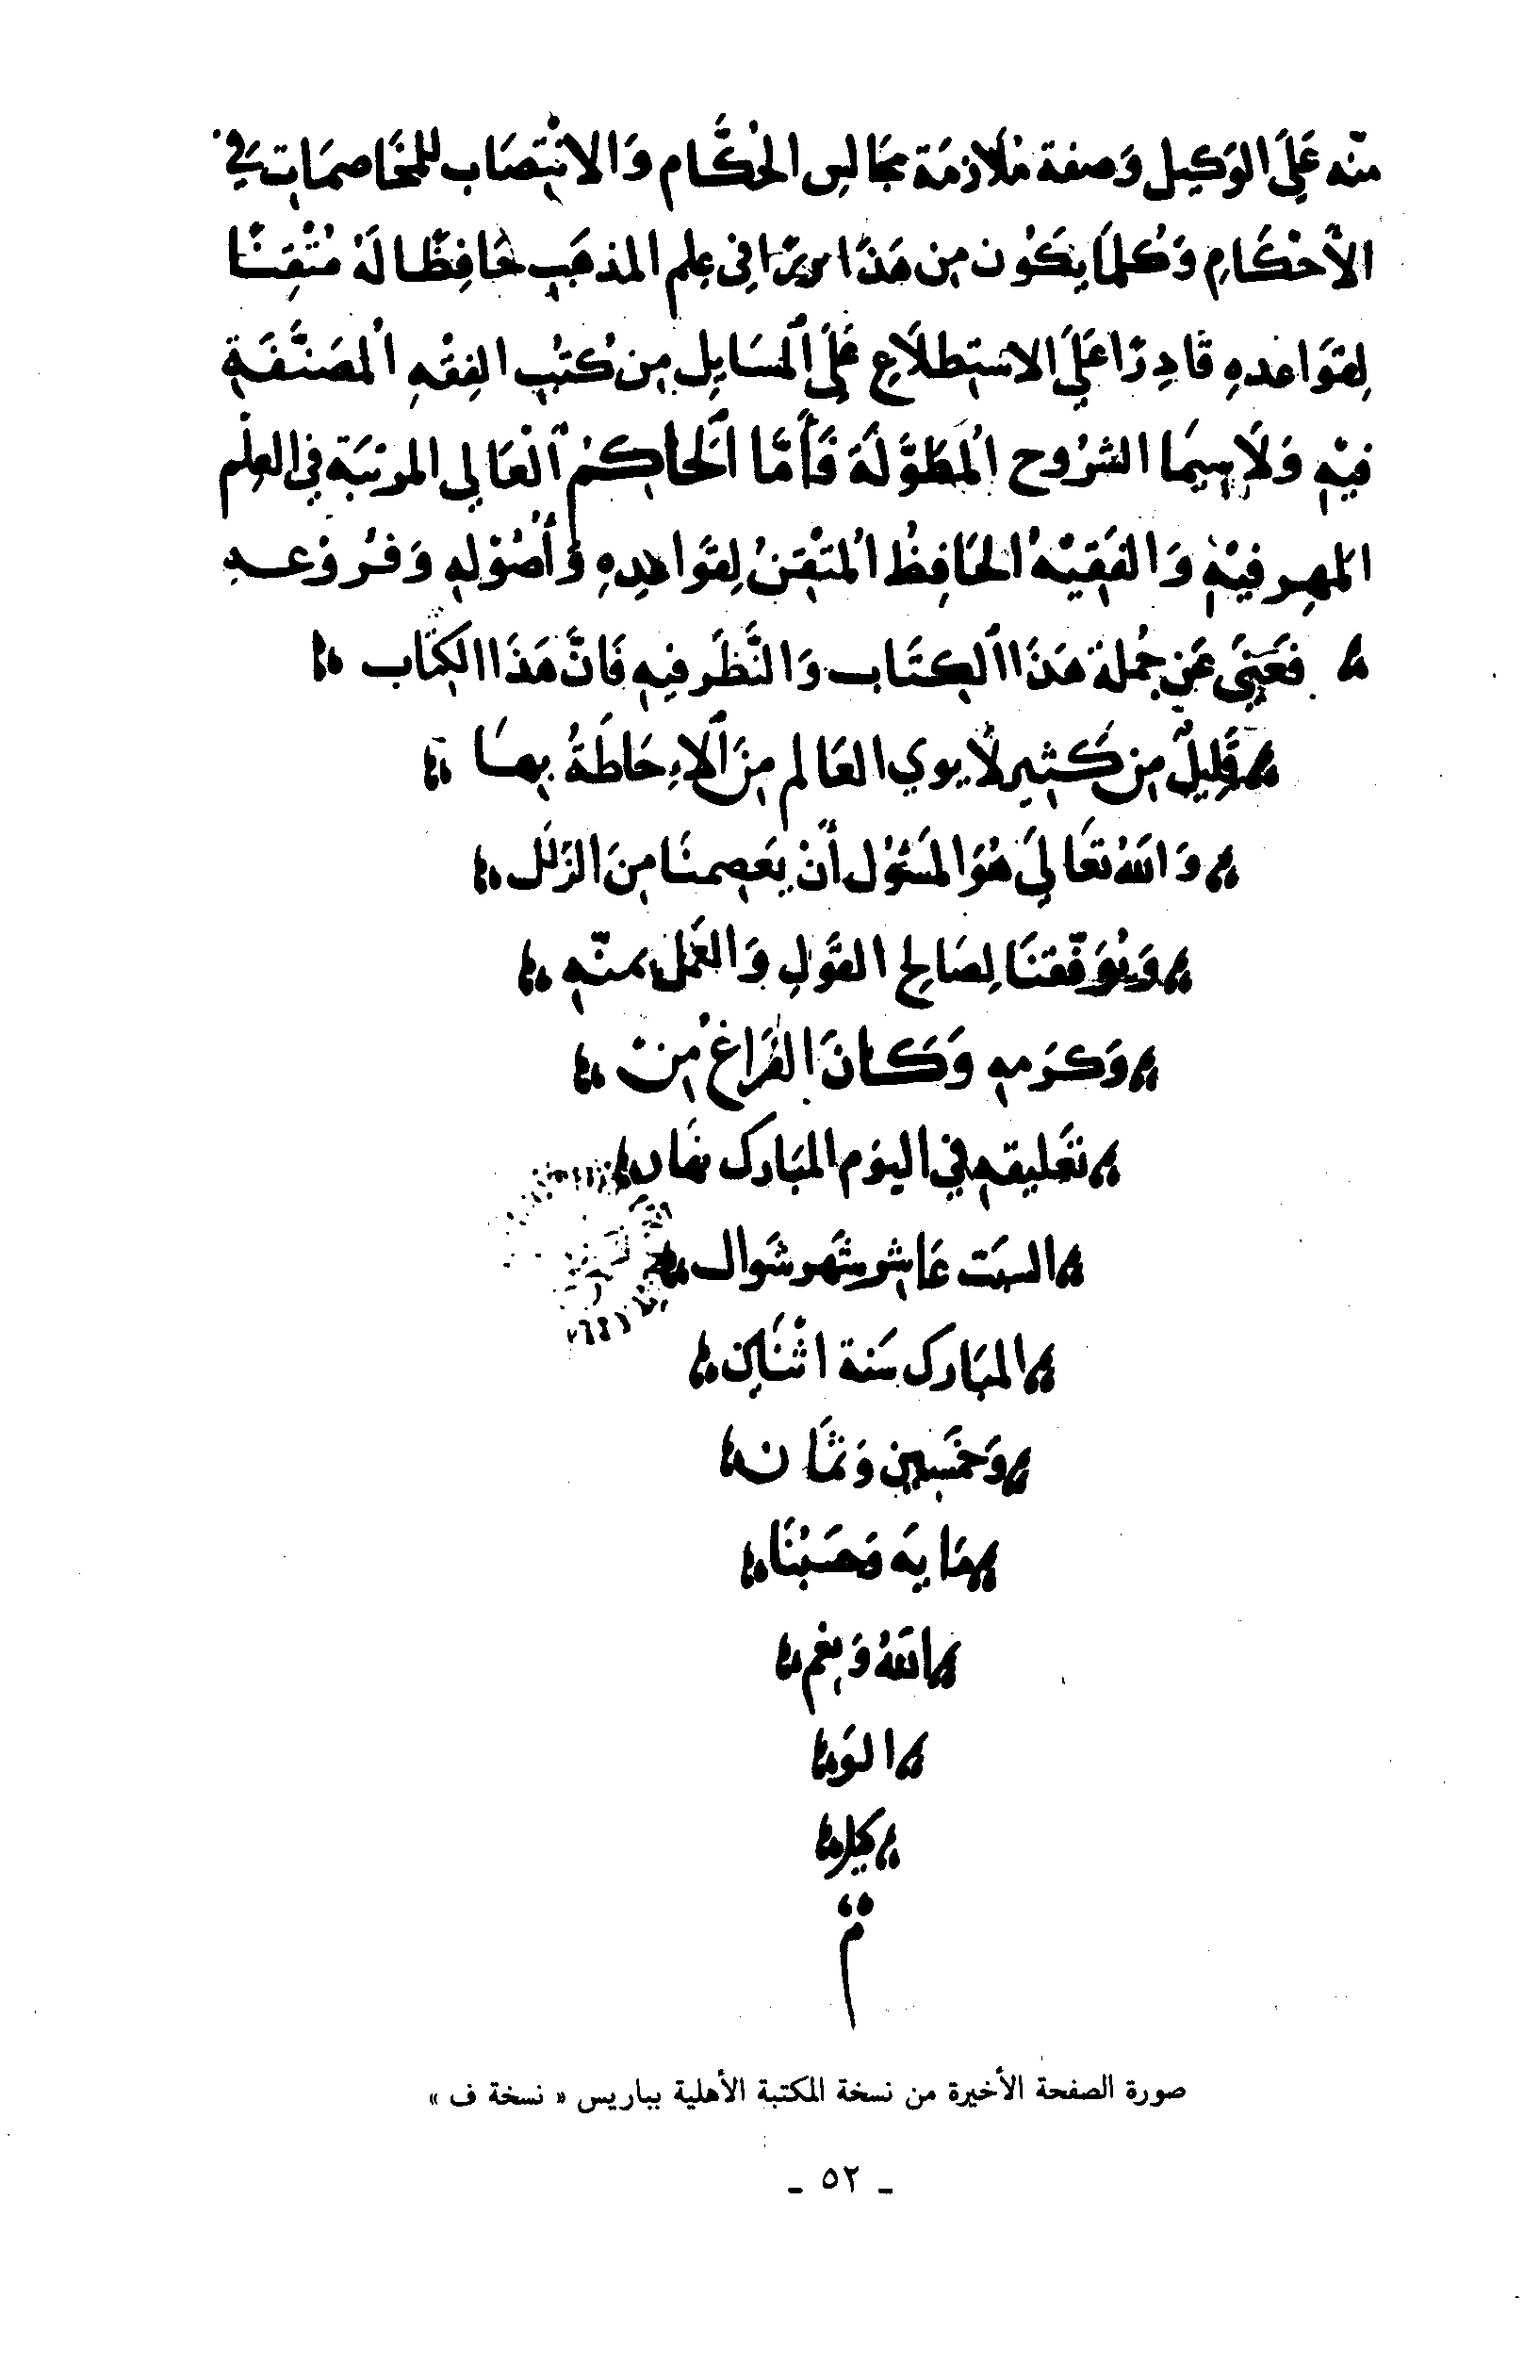 منه عَلَى الوَكِيل وَصفة مُلازمَة مجَالس الحُكَّام وَالانْتِصَاب للمخَاصمَات في
الأَحْكَامِ وَكلمَا يكَوُن من هَذَا في عِلم المذهَبِ حَافِظًا لَهُ مُتْقِنًا
لِقوَاعدهِ قَادِرًا عَلَى الاستطلَاعِ عَلَى المسَايِل مِن كتُبِ الفِقْهِ المصَنَّفَةِ
فيْهِ وَلَا سِيمَا الشرُوح المُطَوَّلَة فَأَمَّا الحَاكِمُ الْعَالي المرتبَة في العِلْم
المهِر فيْهِ وَالفَقِيْهُ الحَافِظُ المُتْقِنُ لِقوَاعِدِهِ وَأُصُوْلهِ وَفرُوْعـهِ
فغَنِيَ عَن جُملة هَذَا الكِتَاب وَالنَّظَر فيهِ فَانَّ هَذَا الكِتَاب
قَلِيلٌ مِن كَثِير لَا يوي العَالم مِنَ الإِحَاطَةُ بهـَا
وَاللهُ تعَالَى هُوَ المسَئُوْل أَنْ يَعصِمنَا مِنَ الزَلَل
وَيُوَفِّقنَا لِصَالِح القَوْلِ وَالعَمَل بمَنّهِ
وَكرَمهِ وَكَانَ الفَرَاغُ مِن
تعَليقهِ في اليوَم المبَارك نهَار
السبَت عَاشِر شَهر شَوال
المبَارك سَنة اثْنَين
وَخمَسِين وَثمَان
مَايه وَحسَبُنَا
اللهُ وَنعِم
الوَ
كيل
م
صورة الصفحة الأخيرة من نسخة المكتبة الأهلية بباريس « نسخة ف »
ـ ٥٢ ـ